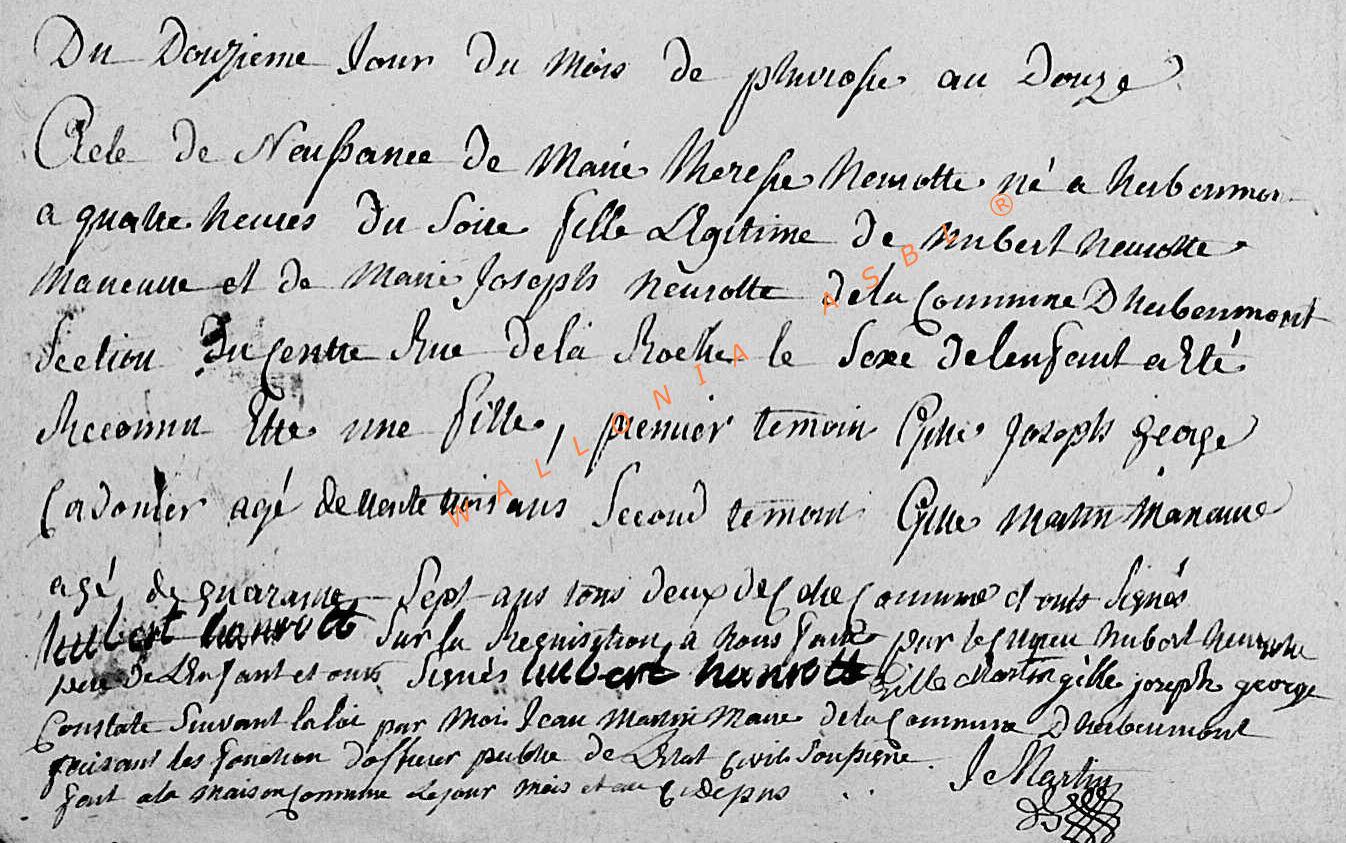 Du Douzieme Jour du Mois de pluviosse au Douze
Acte de Neussance de Marie Theresse henrotte né a herbeumon
a quatre heures du Soire fille Legitime de hubert henrotte
Maneuve et de Marie Joseph henrotte dela Commune Dherbeumont
Section Du Centre Rue dela Roche le Sexe delenfant a Eté
Reconnu Etre une fille, premier temoin Gille Joseph george
Cadonier agé de trente trois ans Second temoin Gille Martin Manauve
agé de quarante Sept ans tous deux de Commune et onts Signés
hubert hanrott Sur la Requisition a Nous faite par hubert henrotte
pere De Lenfant et onts Signés hubert hanrott Gille Martin gille joseph george
Constate Suivant la loi par Moi Jean Martin Maire dela Commune Dherbeumont
faisant les fonction Dofficier publie de Letat Civil Soussigne.
fait ala Maison Commune Lejour Mois et au Cidessus
J Martin
WALLONIA ASBL ®